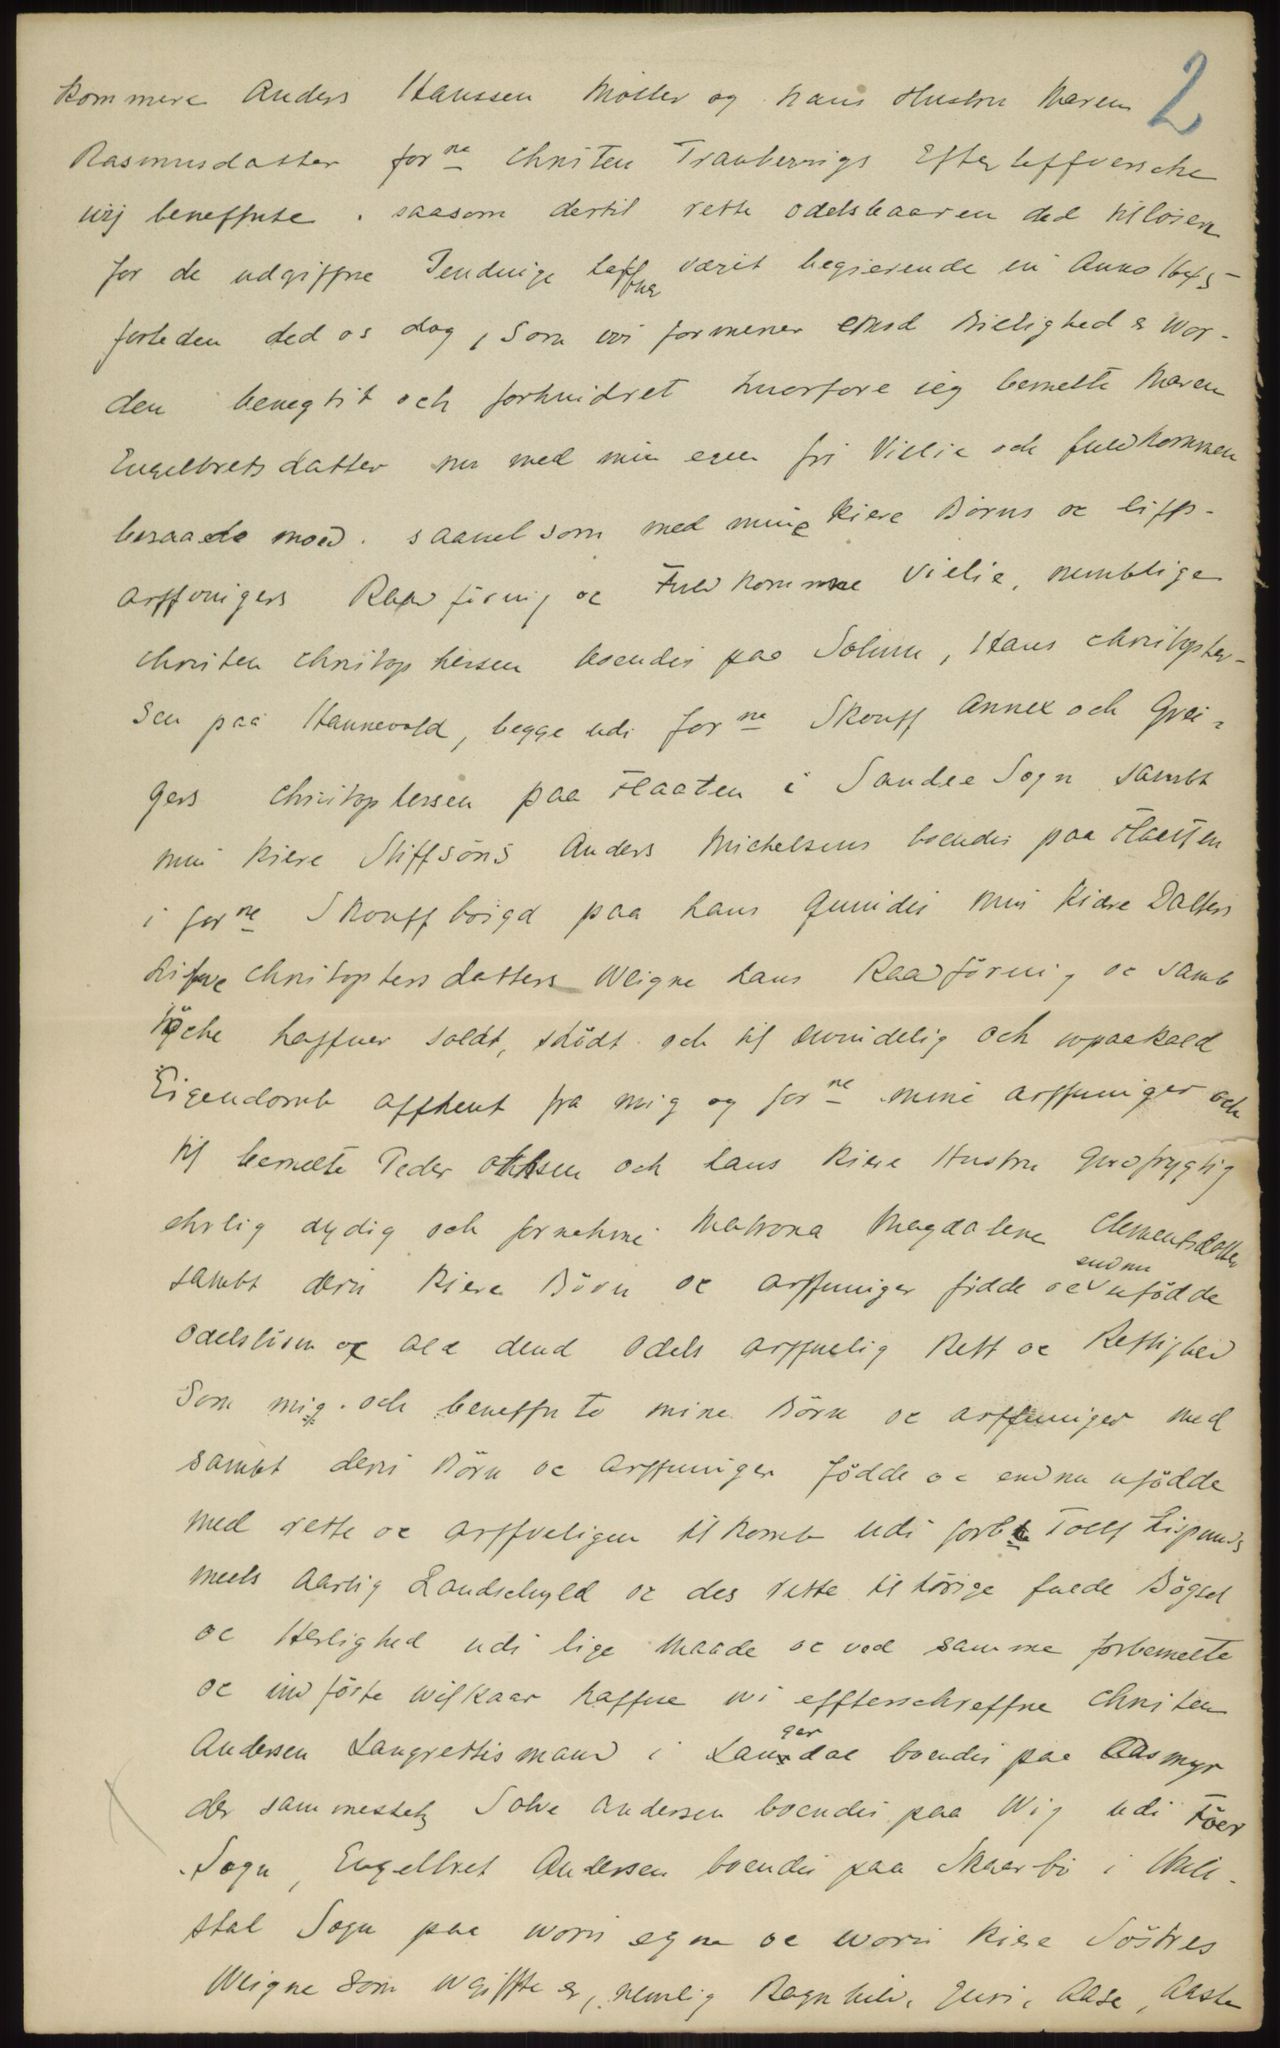 2
Kommere Anders Hanssen Møller og hans Hustru Maren
Rasmusdatter forne Christen Tranbergs Efterleffversche
wij beneffnte. saasom dertil rette odelsbaaren ded tilløsen
for de udgiffne Pendinge haffuer værit begierende in Anno 1645
forleden ded os dog, som wi formener emod Billighed er Wor-
den benegtit och forhindret huorfore ieg bemelte Maren
Engelbretsdatter nu med min egen fri Vielie och fuldkommen
beraade moed. saauelsom med mine kiere Børns oc liffs-
arffvingers Raadføring oc Fuldkomme Vielie, nemblige
Christen Christophersen boendis paa Solum, Hans Christopher-
sen paa Hannevold, begge udi forne Skouff Annex och Grei-
gers Christophersen paa Haaten i Sandee Sogn sambt
min kiere Stiffsøns Anders Michelsens boendis paa Holtten
i forne Skouffboigd paa hans Quindis min kiere Datters
Christophersdatters Weigne hans Raadføring oc samb
tyche haffuer soldt, skiødt och til ewindelig och wpaakald
Eigendomb affhent fra mig og forne mine arffuinger och
til bemelte Peder Ollsen och hans kiere Hustru Gudfrygtig
ehrlig dydig och fornehme Matrona Magdalene Clementsdatter
sambt deris kiere Børn oc arffuinger fødde oc endnu ufødde
odelsløsen oc ald dend odels arffuelig Rett oc Rettighed
Som mig och beneffnte mine Børn oc arffuinger med
sambt deris Børn oc Arffuinger fødde oc endnu ufødde
med rette oc arffveligen tilkomb udi forbte Tolff Lispunds
meels Aarlig Landschyld oc des rette tilhørige fulde Bögsel
oc Herlighed udi lige Maade oc ved samme forbemelte
oc indførte wilkaar haffue wi effterschreffne Christen
Andersen Laugrettismand i Langerdal boendis paa Aasmyr
der sammesteds Solve Andersen boendis paa Wig udi Föer
Sogn, Engelbret Andersen boendis paa Skaarbö i Undi-
stal Sogn paa woris egne oc woris kiere Söstres
Weigne som ugiffte er, nemlig Ragnhild, Guri, Aase, Aaste